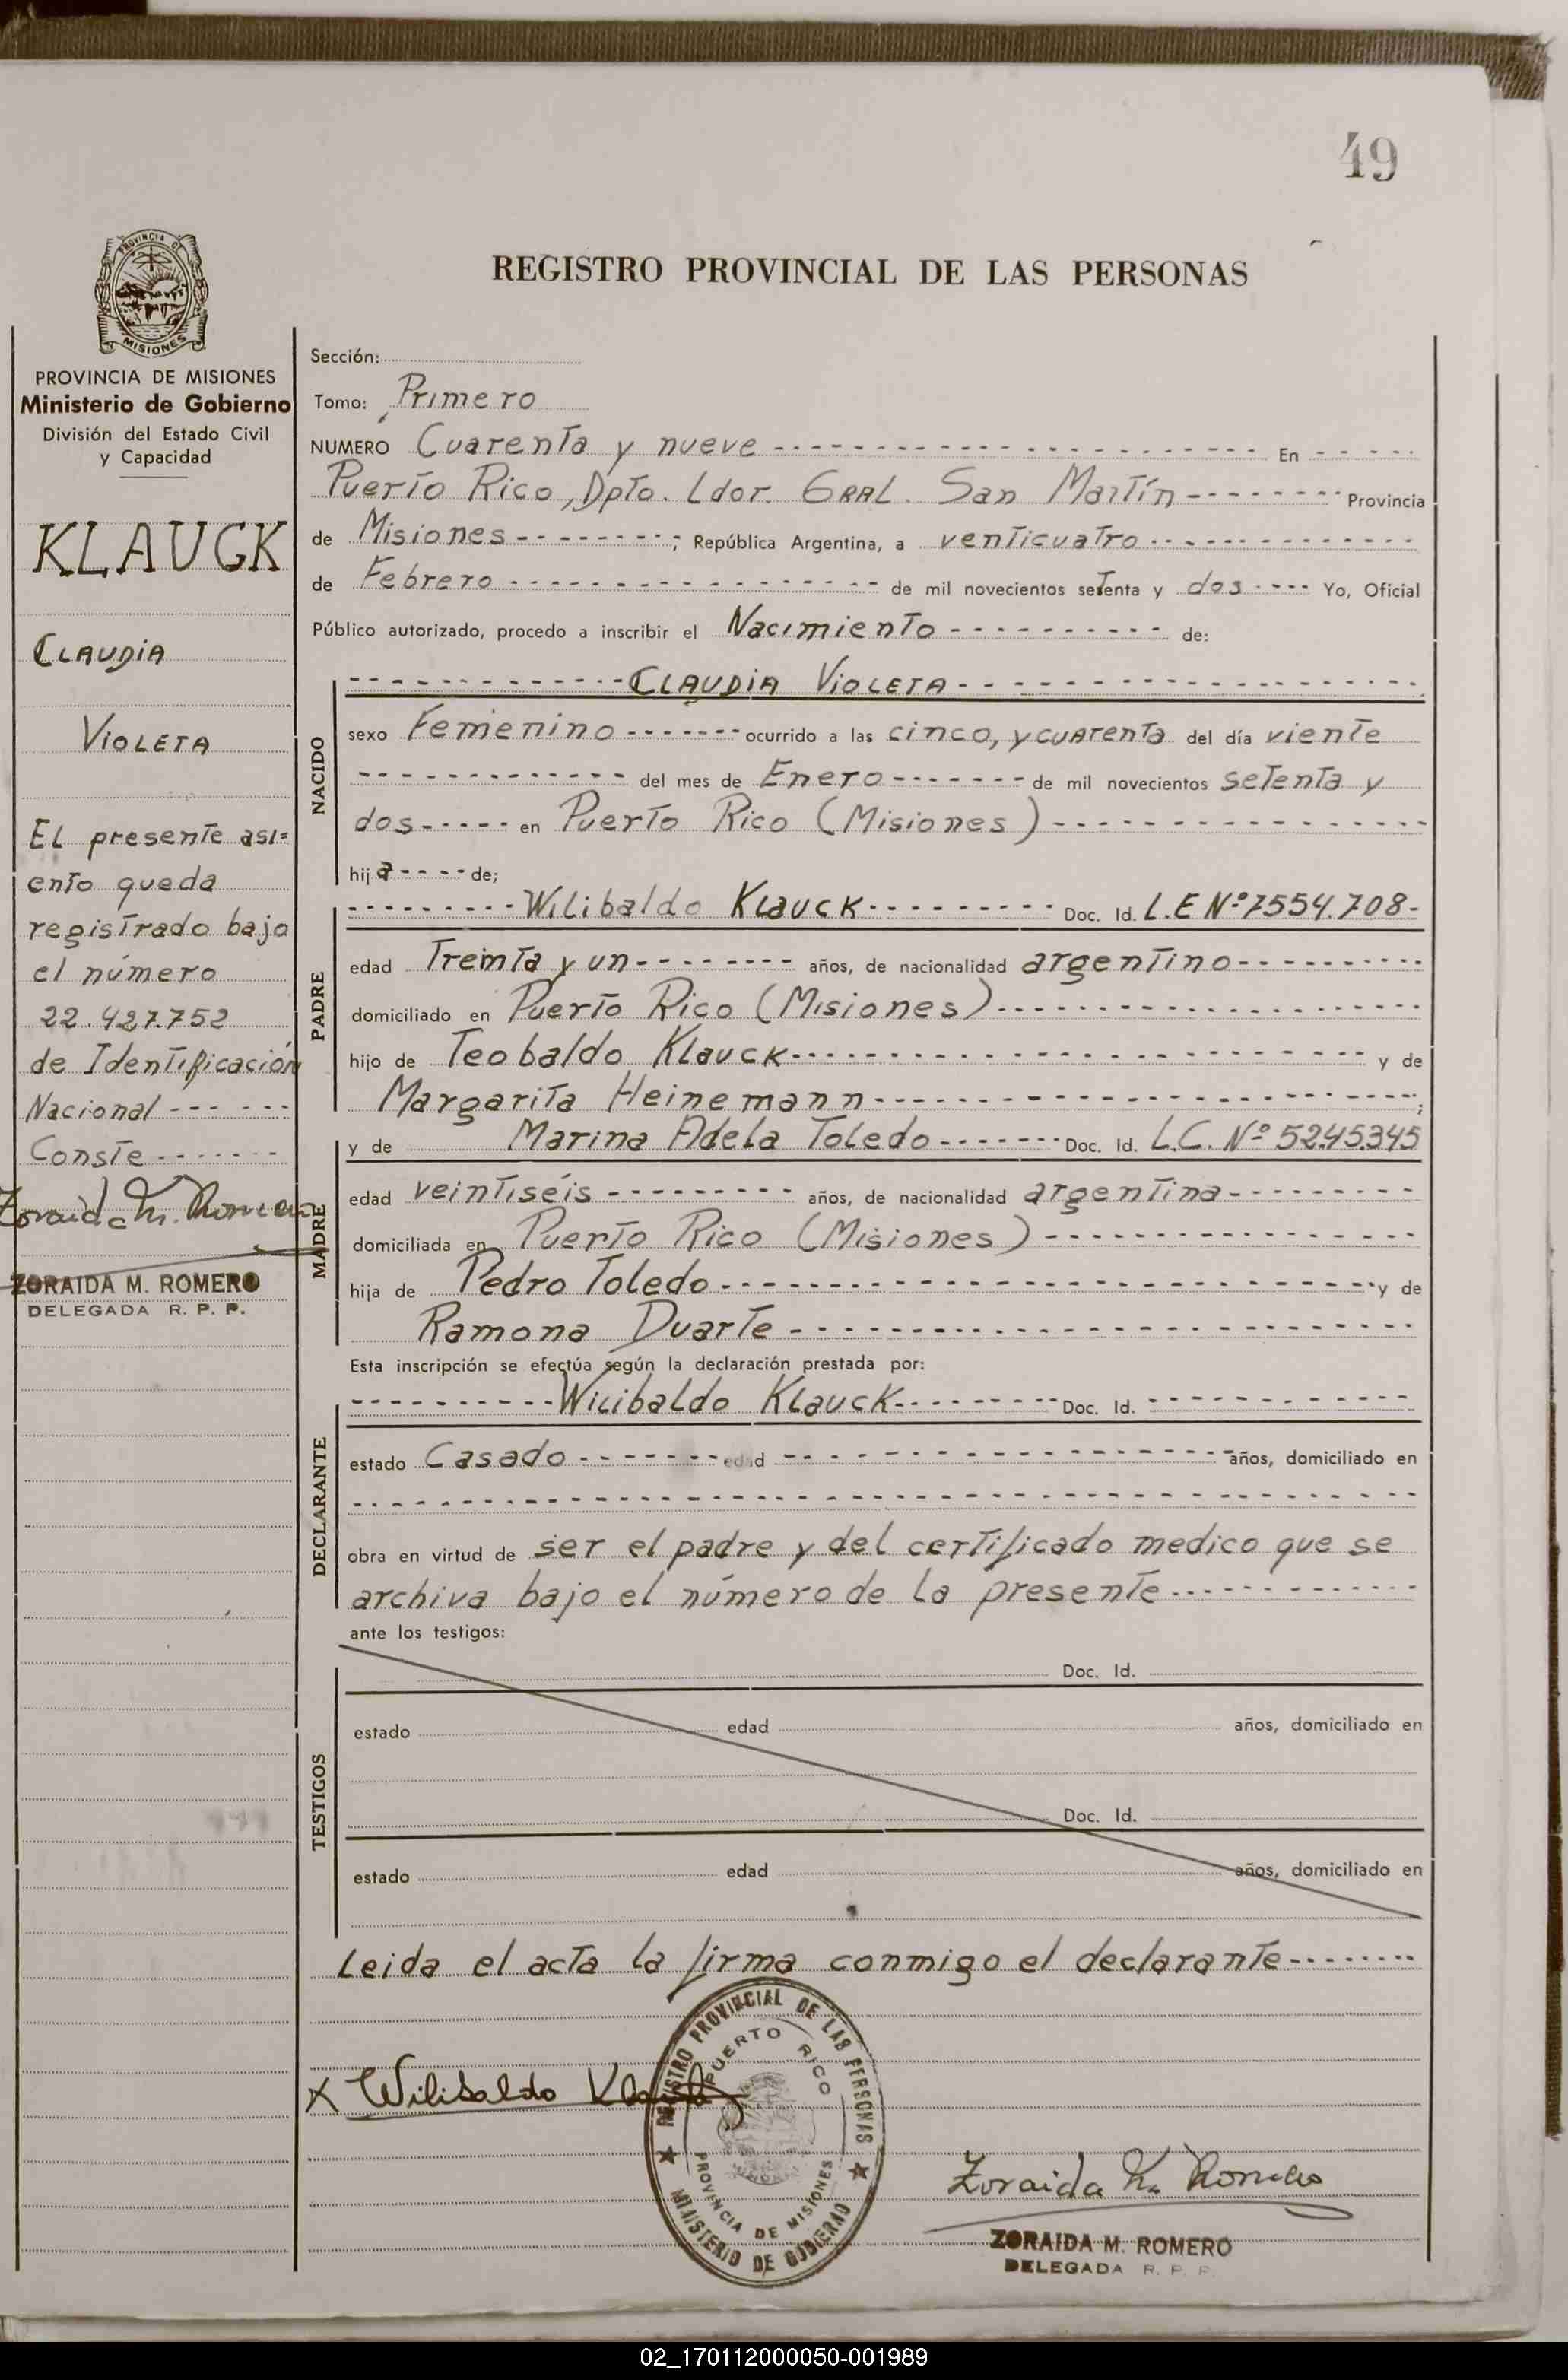 49
REGISTRO PROVINCIAL DE LAS PERSONAS
PROVINCIA DE
MISIONES
PROVINCIA DE MISIONES
Ministerio de Gobierno
División del Estado Civil
y Capacidad
KLAUCK
CLAUDIA
VIOLETA
El presente asi=
ento queda
registrado bajo
el número
22.427.752
de Identificación
Nacional --- ---
Conste -------
Zoraida M. Romero
ZORAIDA M. ROMERO
DELEGADA R. P. P.
Sección:
Tomo: Primero
NUMERO Cuarenta y nueve -------- En -----
Puerto Rico, Dpto. Ldor. GRAL. San Martín -------- Provincia
de Misiones --------; República Argentina, a venticuatro --------
de Febrero -------- de mil novecientos setenta y dos ---- Yo, Oficial
Público autorizado, procedo a inscribir el Nacimiento -------- de:
NACIDO
-------- CLAUDIA VIOLETA --------
sexo Femenino ------- ocurrido a las cinco, y cuarenta del día viente
-------- del mes de Enero ------- de mil novecientos setenta y
dos ----- en Puerto Rico (Misiones) --------
hija ---- de;
PADRE
-------- Wilibaldo Klauck -------- Doc. Id. L.E Nº 7554.708-
edad Treinta y un -------- años, de nacionalidad argentino --------
domiciliado en Puerto Rico (Misiones) --------
hijo de Teobaldo Klauck -------- y de
Margarita Heinemann --------;
MADRE
y de Marina Adela Toledo ------- Doc. Id. L.C. Nº 5245.345
edad veintiséis -------- años, de nacionalidad argentina --------
domiciliada en Puerto Rico (Misiones) --------
hija de Pedro Toledo -------- y de
Ramona Duarte --------
Esta inscripción se efectúa según la declaración prestada por:
DECLARANTE
-------- Wilibaldo Klauck -------- Doc. Id. --------
estado Casado ------- edad -------- años, domiciliado en
--------
obra en virtud de ser el padre y del certificado medico que se
archiva bajo el número de la presente --------
ante los testigos:
TESTIGOS
Doc. Id.
estado edad años, domiciliado en
Doc. Id.
estado edad años, domiciliado en
Leida el acta la firma conmigo el declarante --------
X Wilibaldo Klauck
REGISTRO PROVINCIAL DE LAS PERSONAS
PUERTO RICO
PROVINCIA DE MISIONES
MINISTERIO DE GOBIERNO
Zoraida M. Romero
ZORAIDA M. ROMERO
DELEGADA R. P. P.
02_170112000050-001989